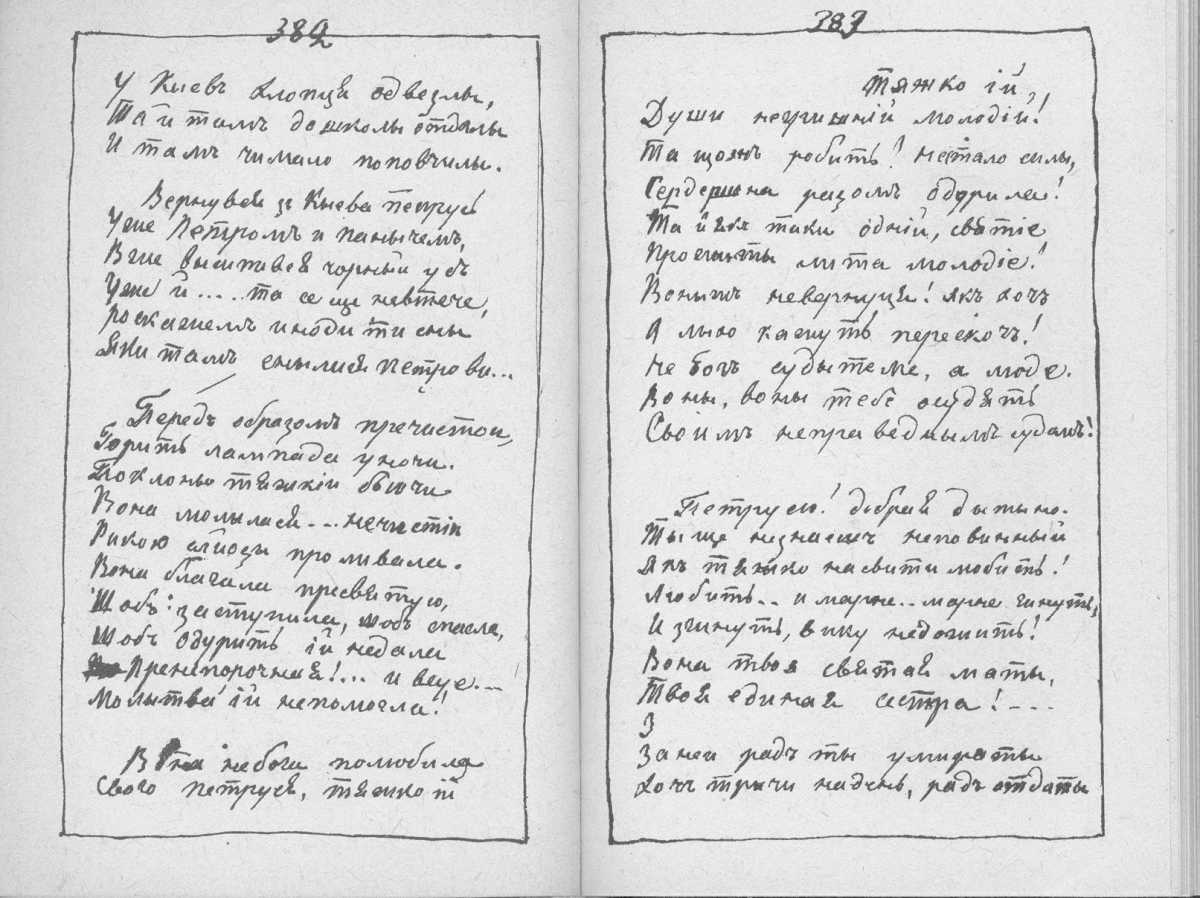 382
У Кыевъ хлопця одвезлы,
Та й тамъ до школы отдалы
И тамъ чимало поповчилы.
Вернувся зъ Кыева петрусь
Уже Петромъ и панычемъ,
Вже высыпавсь чорный усъ
Уже й .... та се ще невтече,
роскажемъ иноди ти сны
Яки тамъ снылися петрови...
Передъ образомъ пречистои,
Горить лампада уночи.
Поклоны тяжкіи бьючи
Вона молылася... нечистіи
Рикою слiозы проливала.
Вона благала пресвятую,
Щобъ заступила, щобъ спасла,
Щобъ одурить ій недала
Пренепорочная!... и всуе...
Молытва ій непомогла!
Вона небога полюбила
Свого петруся, тяжко ій
383
тяжко ій,
Души неутишній молодій!
Та щожъ робить! нестало силы,
Сердешна разомъ одурила!
Та й якъ таки одній, святіе
Прожыты лита молодіе!
Воныжъ невернуця! якъ хочъ
А мою кажуть перескочъ!
не богъ судытеме, а люде.
Воны, воны тебе осудять
Своімъ неправеднымъ судомъ!
Петрусю! добрая дытыно.
Ты ще незнаешъ неповинный
Якъ тяжко насвити любить!
Любить.. и марне.. марне гинуть,
И згинуть, вику недожить!
Вона твоя святая маты,
Твоя единая сестра!...
З
За неи радъ ты умираты
Хочъ трычи надень, радъ отдаты